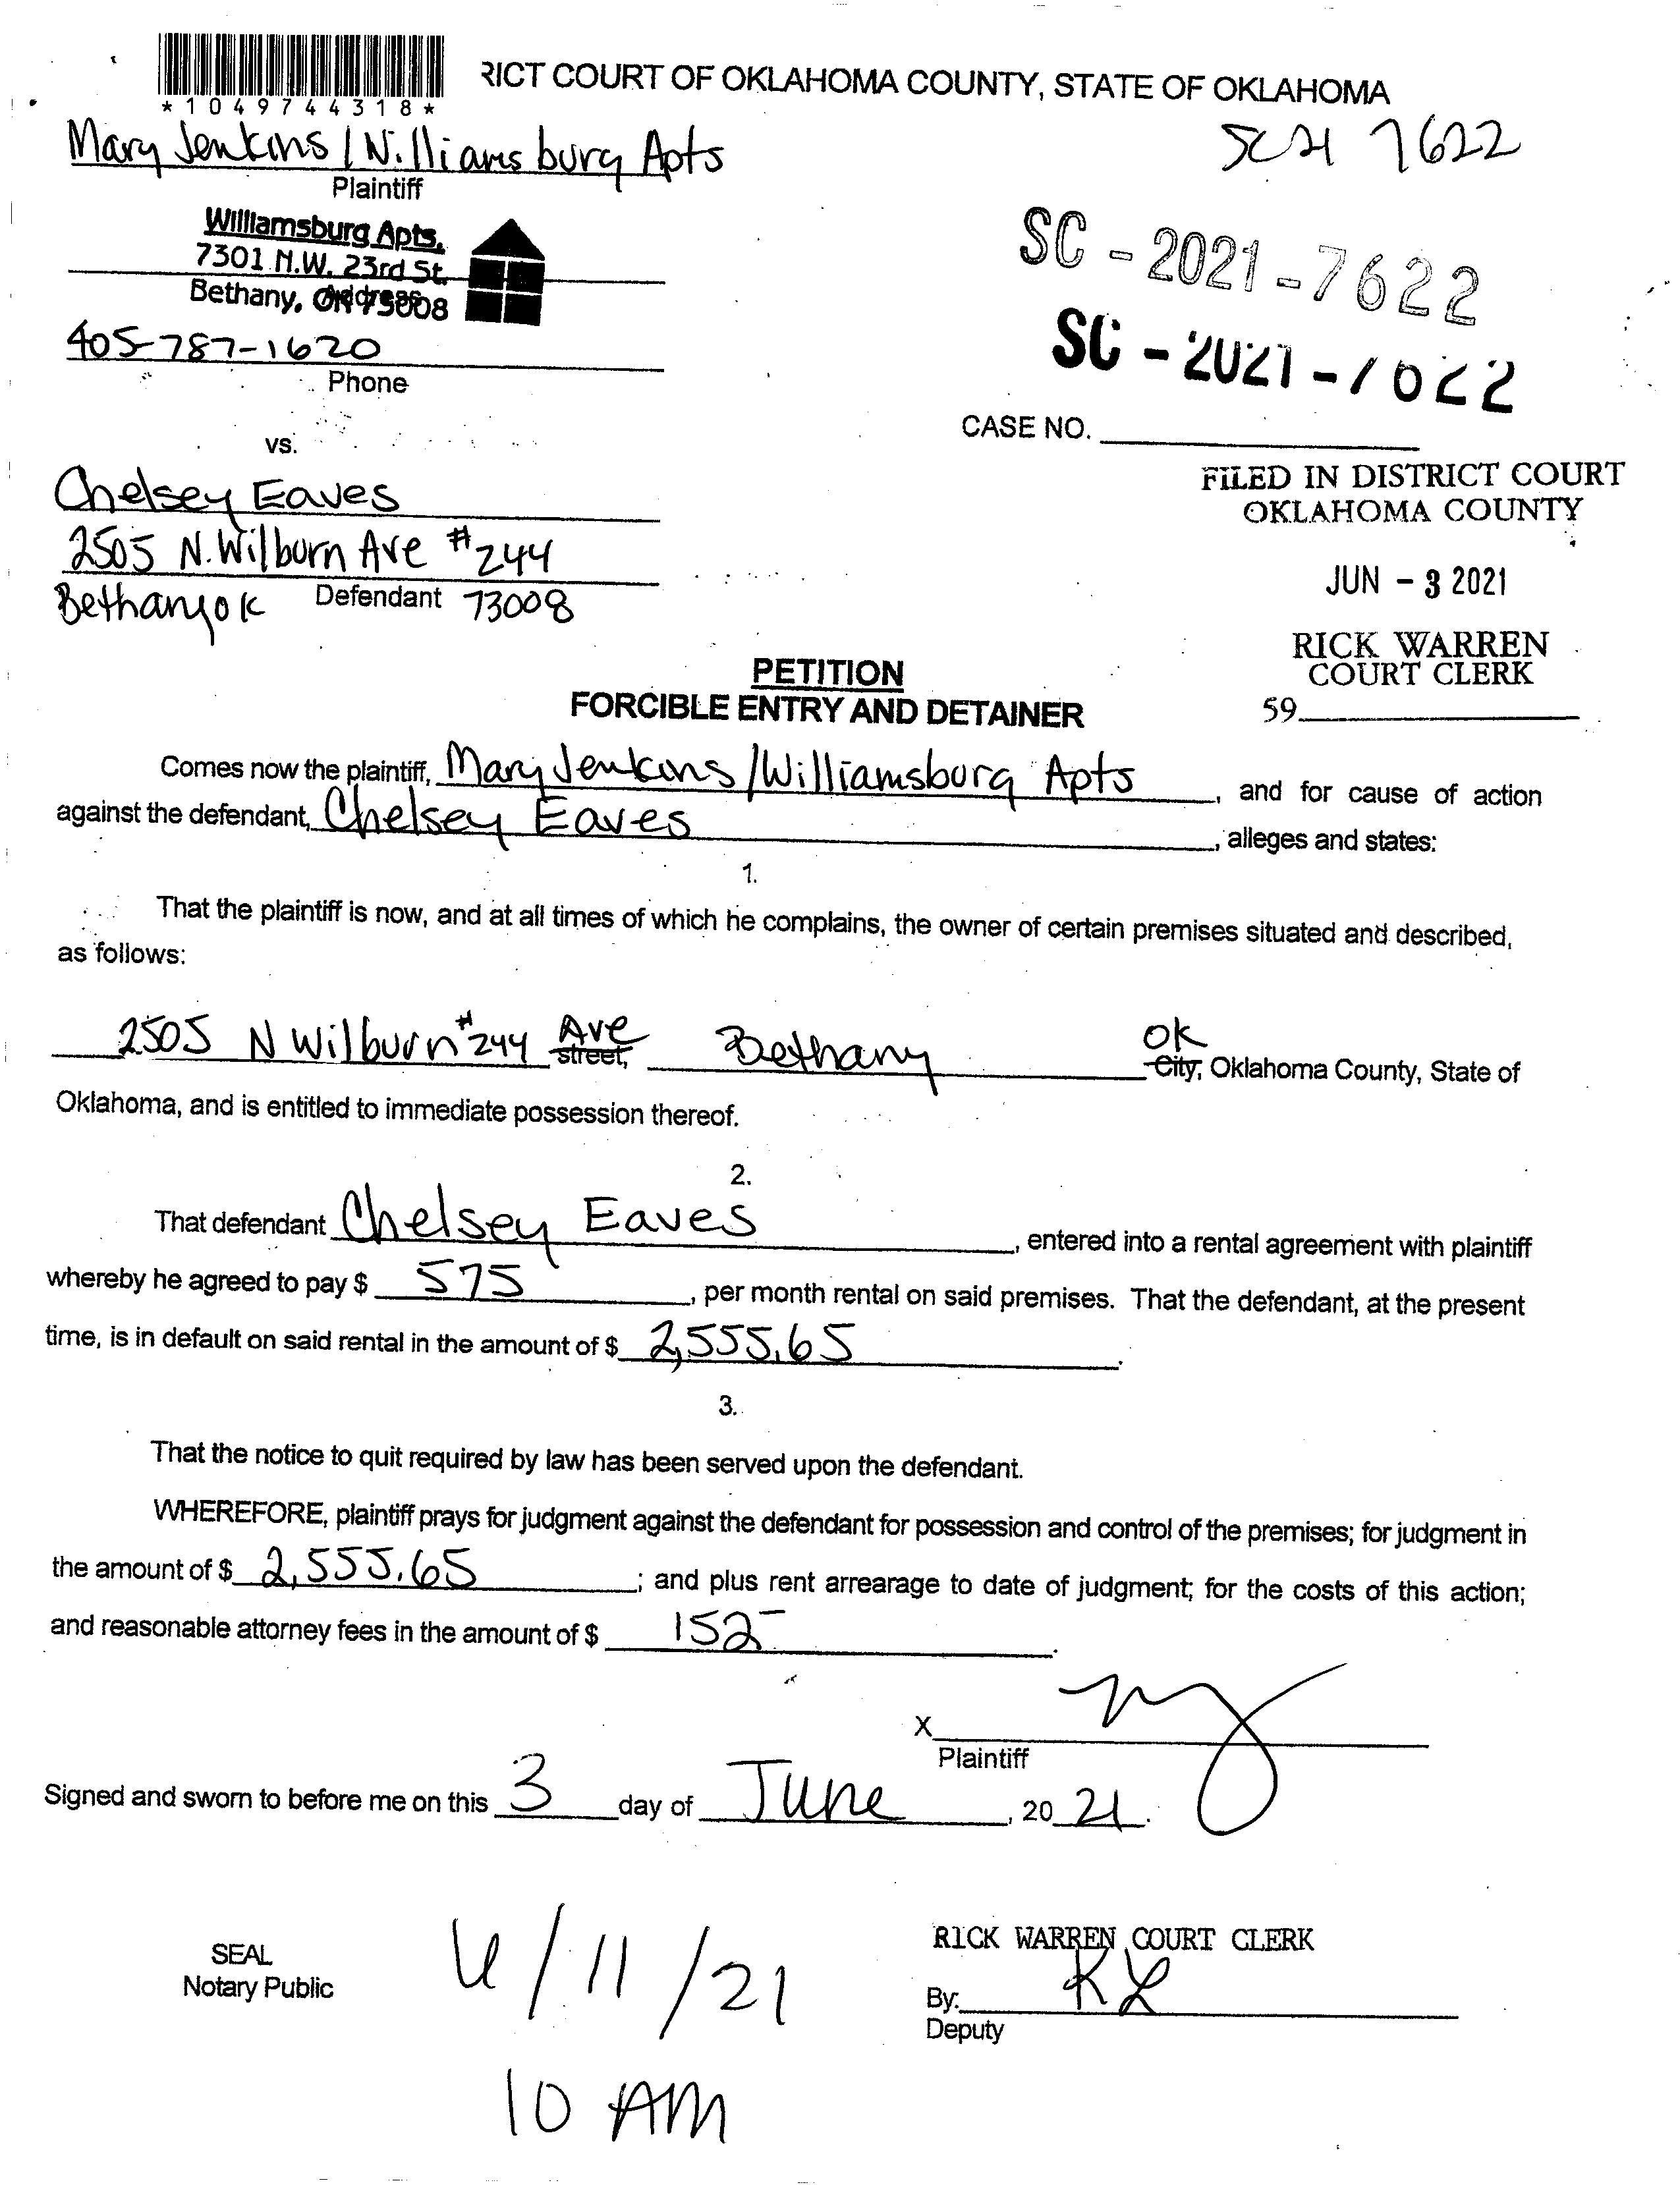 *1049744318*
RICT COURT OF OKLAHOMA COUNTY, STATE OF OKLAHOMA
SC21 7622
Mary Jenkins / Williamsburg Apts
Plaintiff
Williamsburg Apts.
7301 N.W. 23rd St.
Address
Bethany, OK 73008
SC - 2021 - 7622
SC - 2021 - 7622
405-787-1620
Phone
CASE NO.
vs.
FILED IN DISTRICT COURT
OKLAHOMA COUNTY
Chelsey Eaves
2505 N. Wilburn Ave #244
Bethany OK Defendant 73008
JUN - 3 2021
RICK WARREN
COURT CLERK
59
PETITION
FORCIBLE ENTRY AND DETAINER
Comes now the plaintiff, Mary Jenkins / Williamsburg Apts, and for cause of action
against the defendant, Chelsey Eaves, alleges and states:
1.
That the plaintiff is now, and at all times of which he complains, the owner of certain premises situated and described,
as follows:
2505 N Wilburn #244 Ave street, Bethany OK City, Oklahoma County, State of
Oklahoma, and is entitled to immediate possession thereof.
2.
That defendant Chelsey Eaves, entered into a rental agreement with plaintiff
whereby he agreed to pay $ 575, per month rental on said premises. That the defendant, at the present
time, is in default on said rental in the amount of $ 2,555.65.
3.
That the notice to quit required by law has been served upon the defendant.
WHEREFORE, plaintiff prays for judgment against the defendant for possession and control of the premises; for judgment in
the amount of $ 2,555.65; and plus rent arrearage to date of judgment; for the costs of this action;
and reasonable attorney fees in the amount of $ 152-.
X
Plaintiff
Signed and sworn to before me on this 3 day of June, 20 21.
SEAL
Notary Public
6/11/21
10 AM
RICK WARREN COURT CLERK
By: KL
Deputy